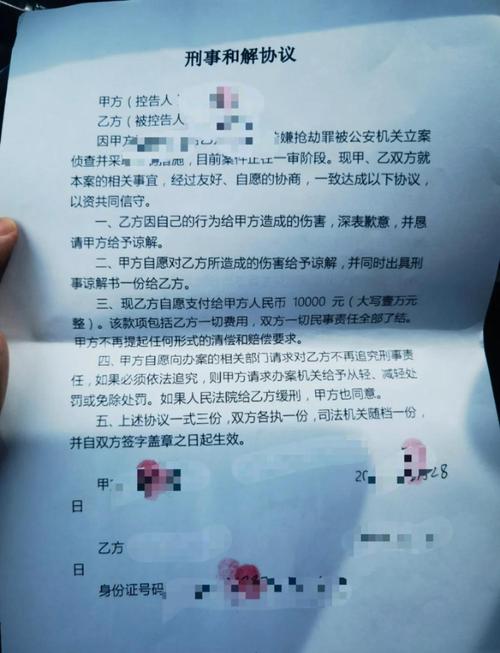 刑事和解协议
甲方（控告人
乙方（被控告人
因甲方 嫌抢劫罪被公安机关立案
侦查并采 措施，目前案件正在一审阶段。现甲、乙双方就
本案的相关事宜，经过友好、自愿的协商，一致达成以下协议，
以资共同信守。
一、乙方因自己的行为给甲方造成的伤害，深表歉意，并恳
请甲方给予谅解。
二、甲方自愿对乙方所造成的伤害给予谅解，并同时出具刑
事谅解书一份给乙方。
三、现乙方自愿支付给甲方人民币 10000 元（大写壹万元
整）。该款项包括乙方一切费用，双方一切民事责任全部了结。
甲方不再提起任何形式的清偿和赔偿要求。
四、甲方自愿向办案的相关部门请求对乙方不再追究刑事责
任，如果必须依法追究，则甲方请求办案机关给予从轻、减轻处
罚或免除处罚。如果人民法院给乙方缓刑，甲方也同意。
五、上述协议一式三份，双方各执一份，司法机关随档一份，
并自双方签字盖章之日起生效。
甲
日
乙方
日
身份证号码